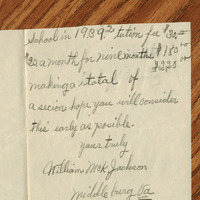 school in 1939² tution fee $30.00
$20 a month for nine months $180.00
making a total of $220.00
a secion hope you will consider
this early as posible.
yours truly
William McK Jackson
Middleburg Va